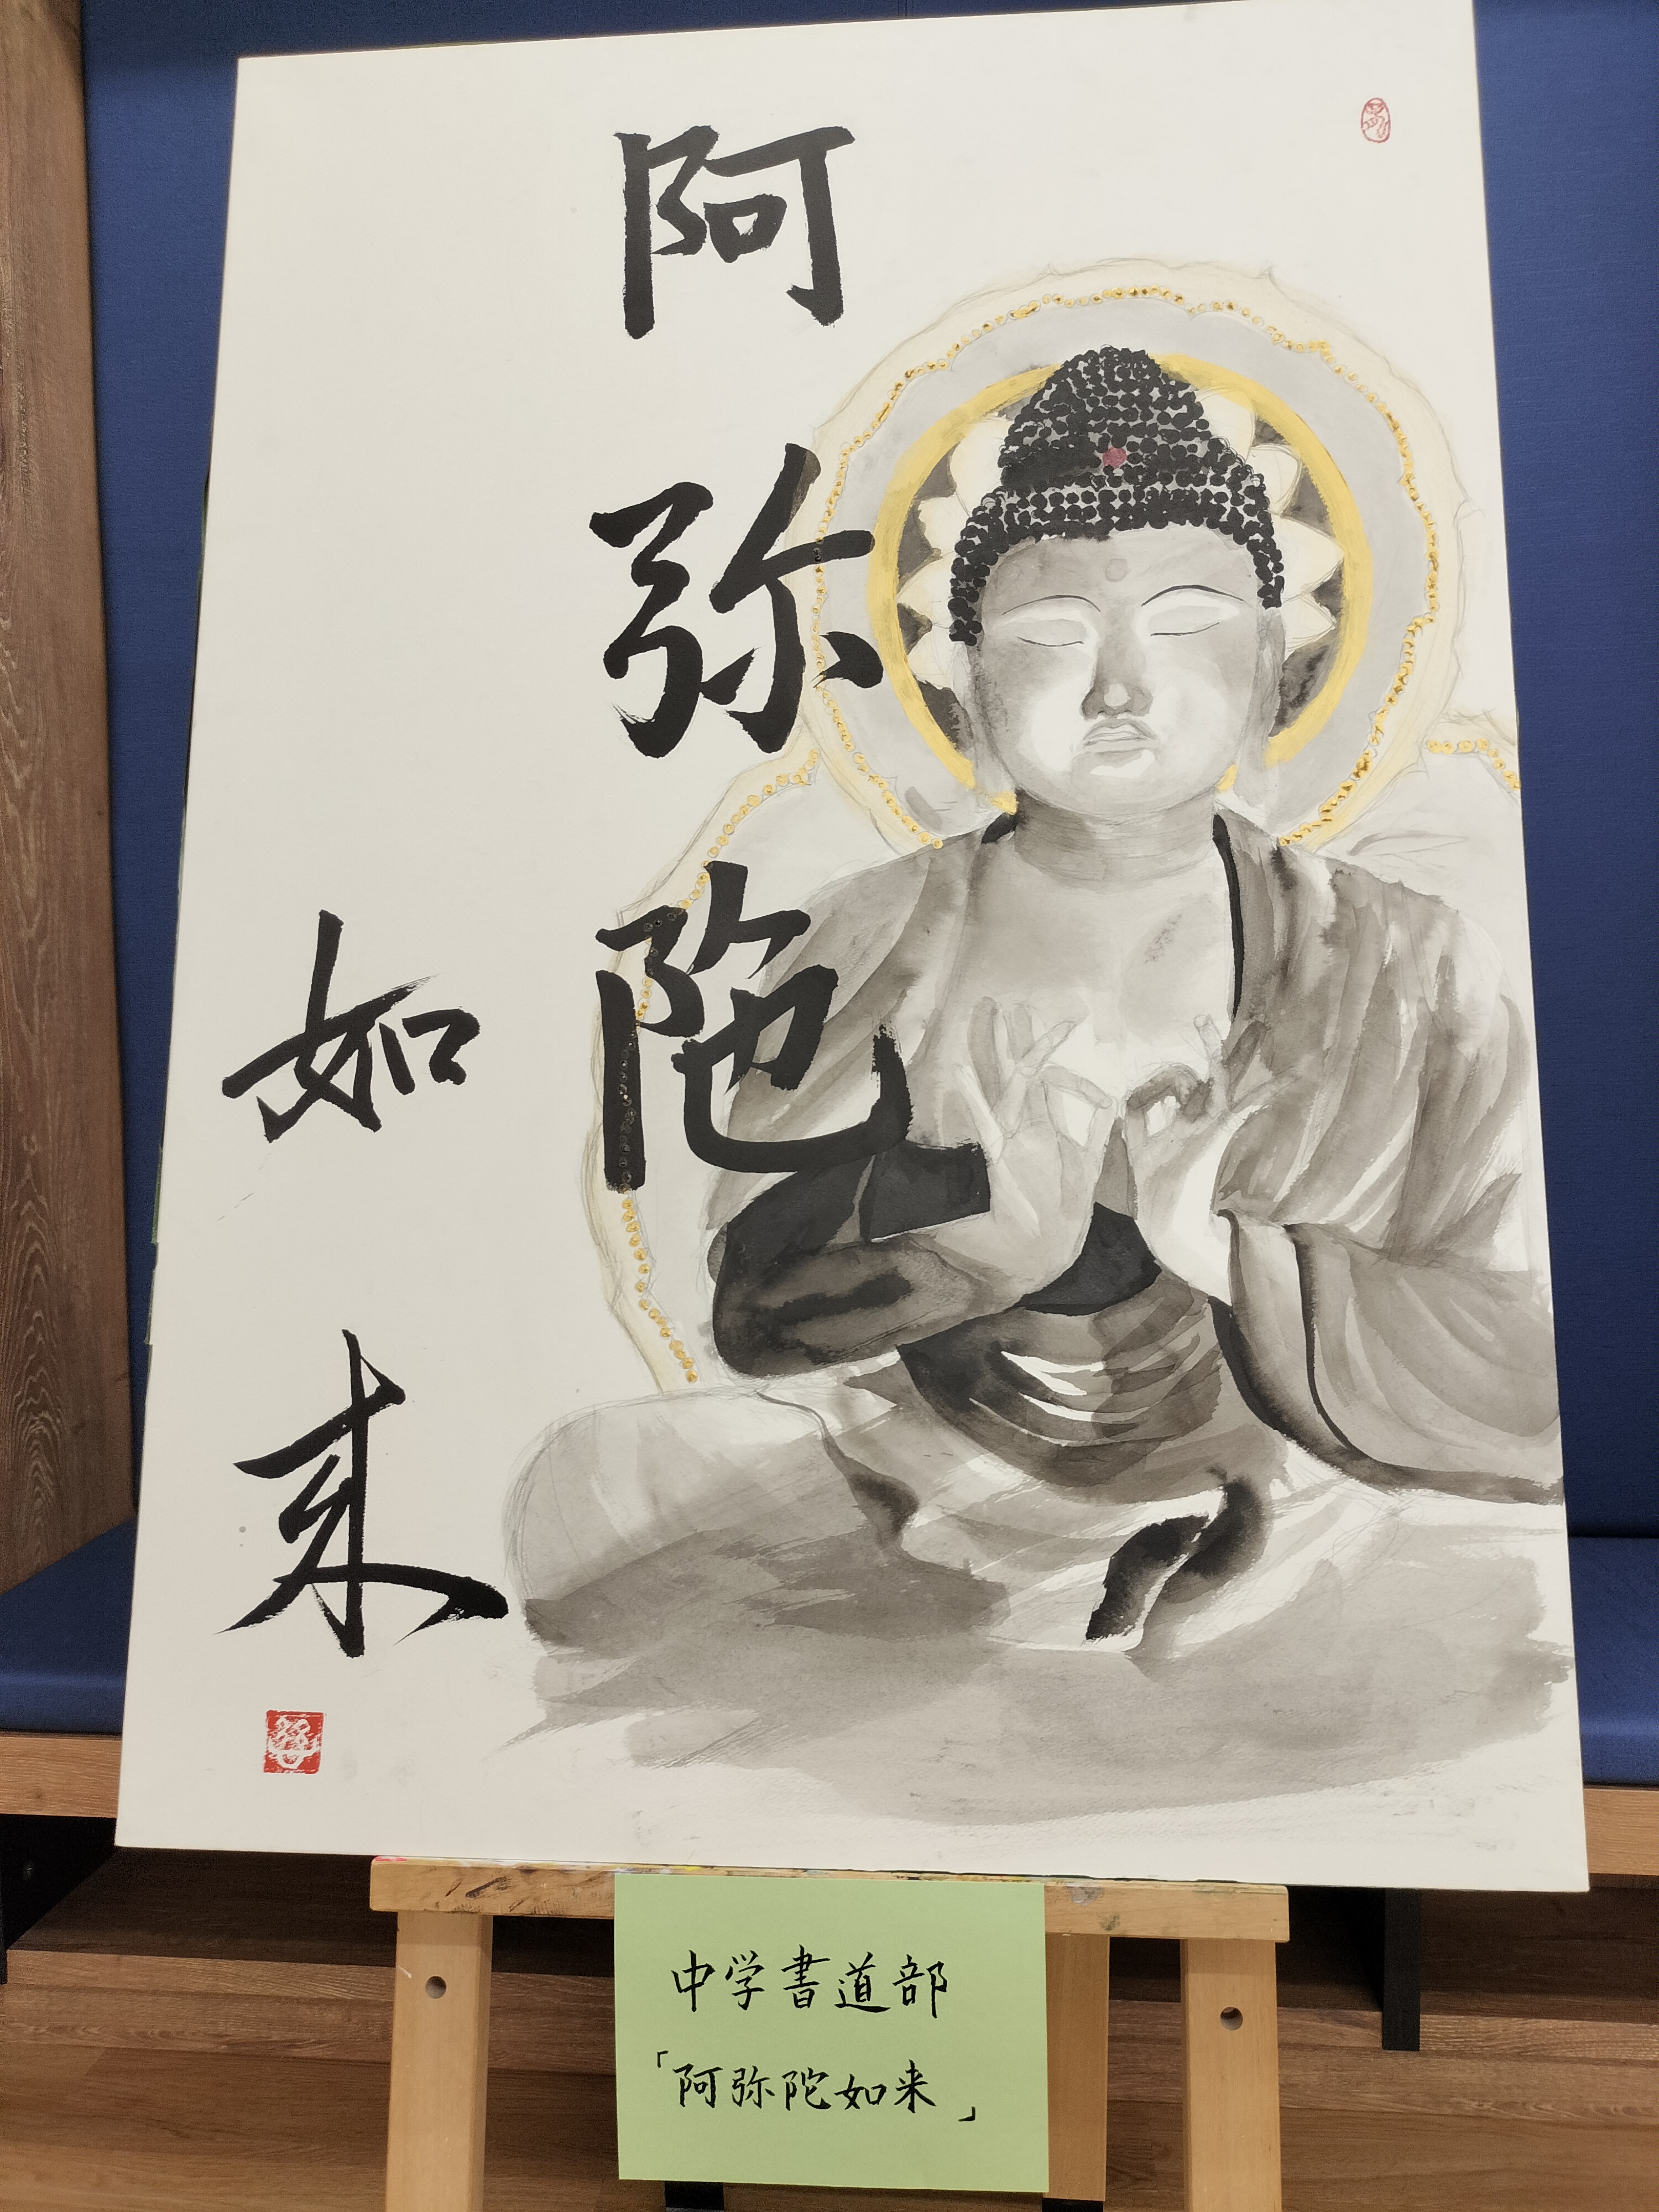 阿弥陀
如来
中学書道部
「阿弥陀如来」